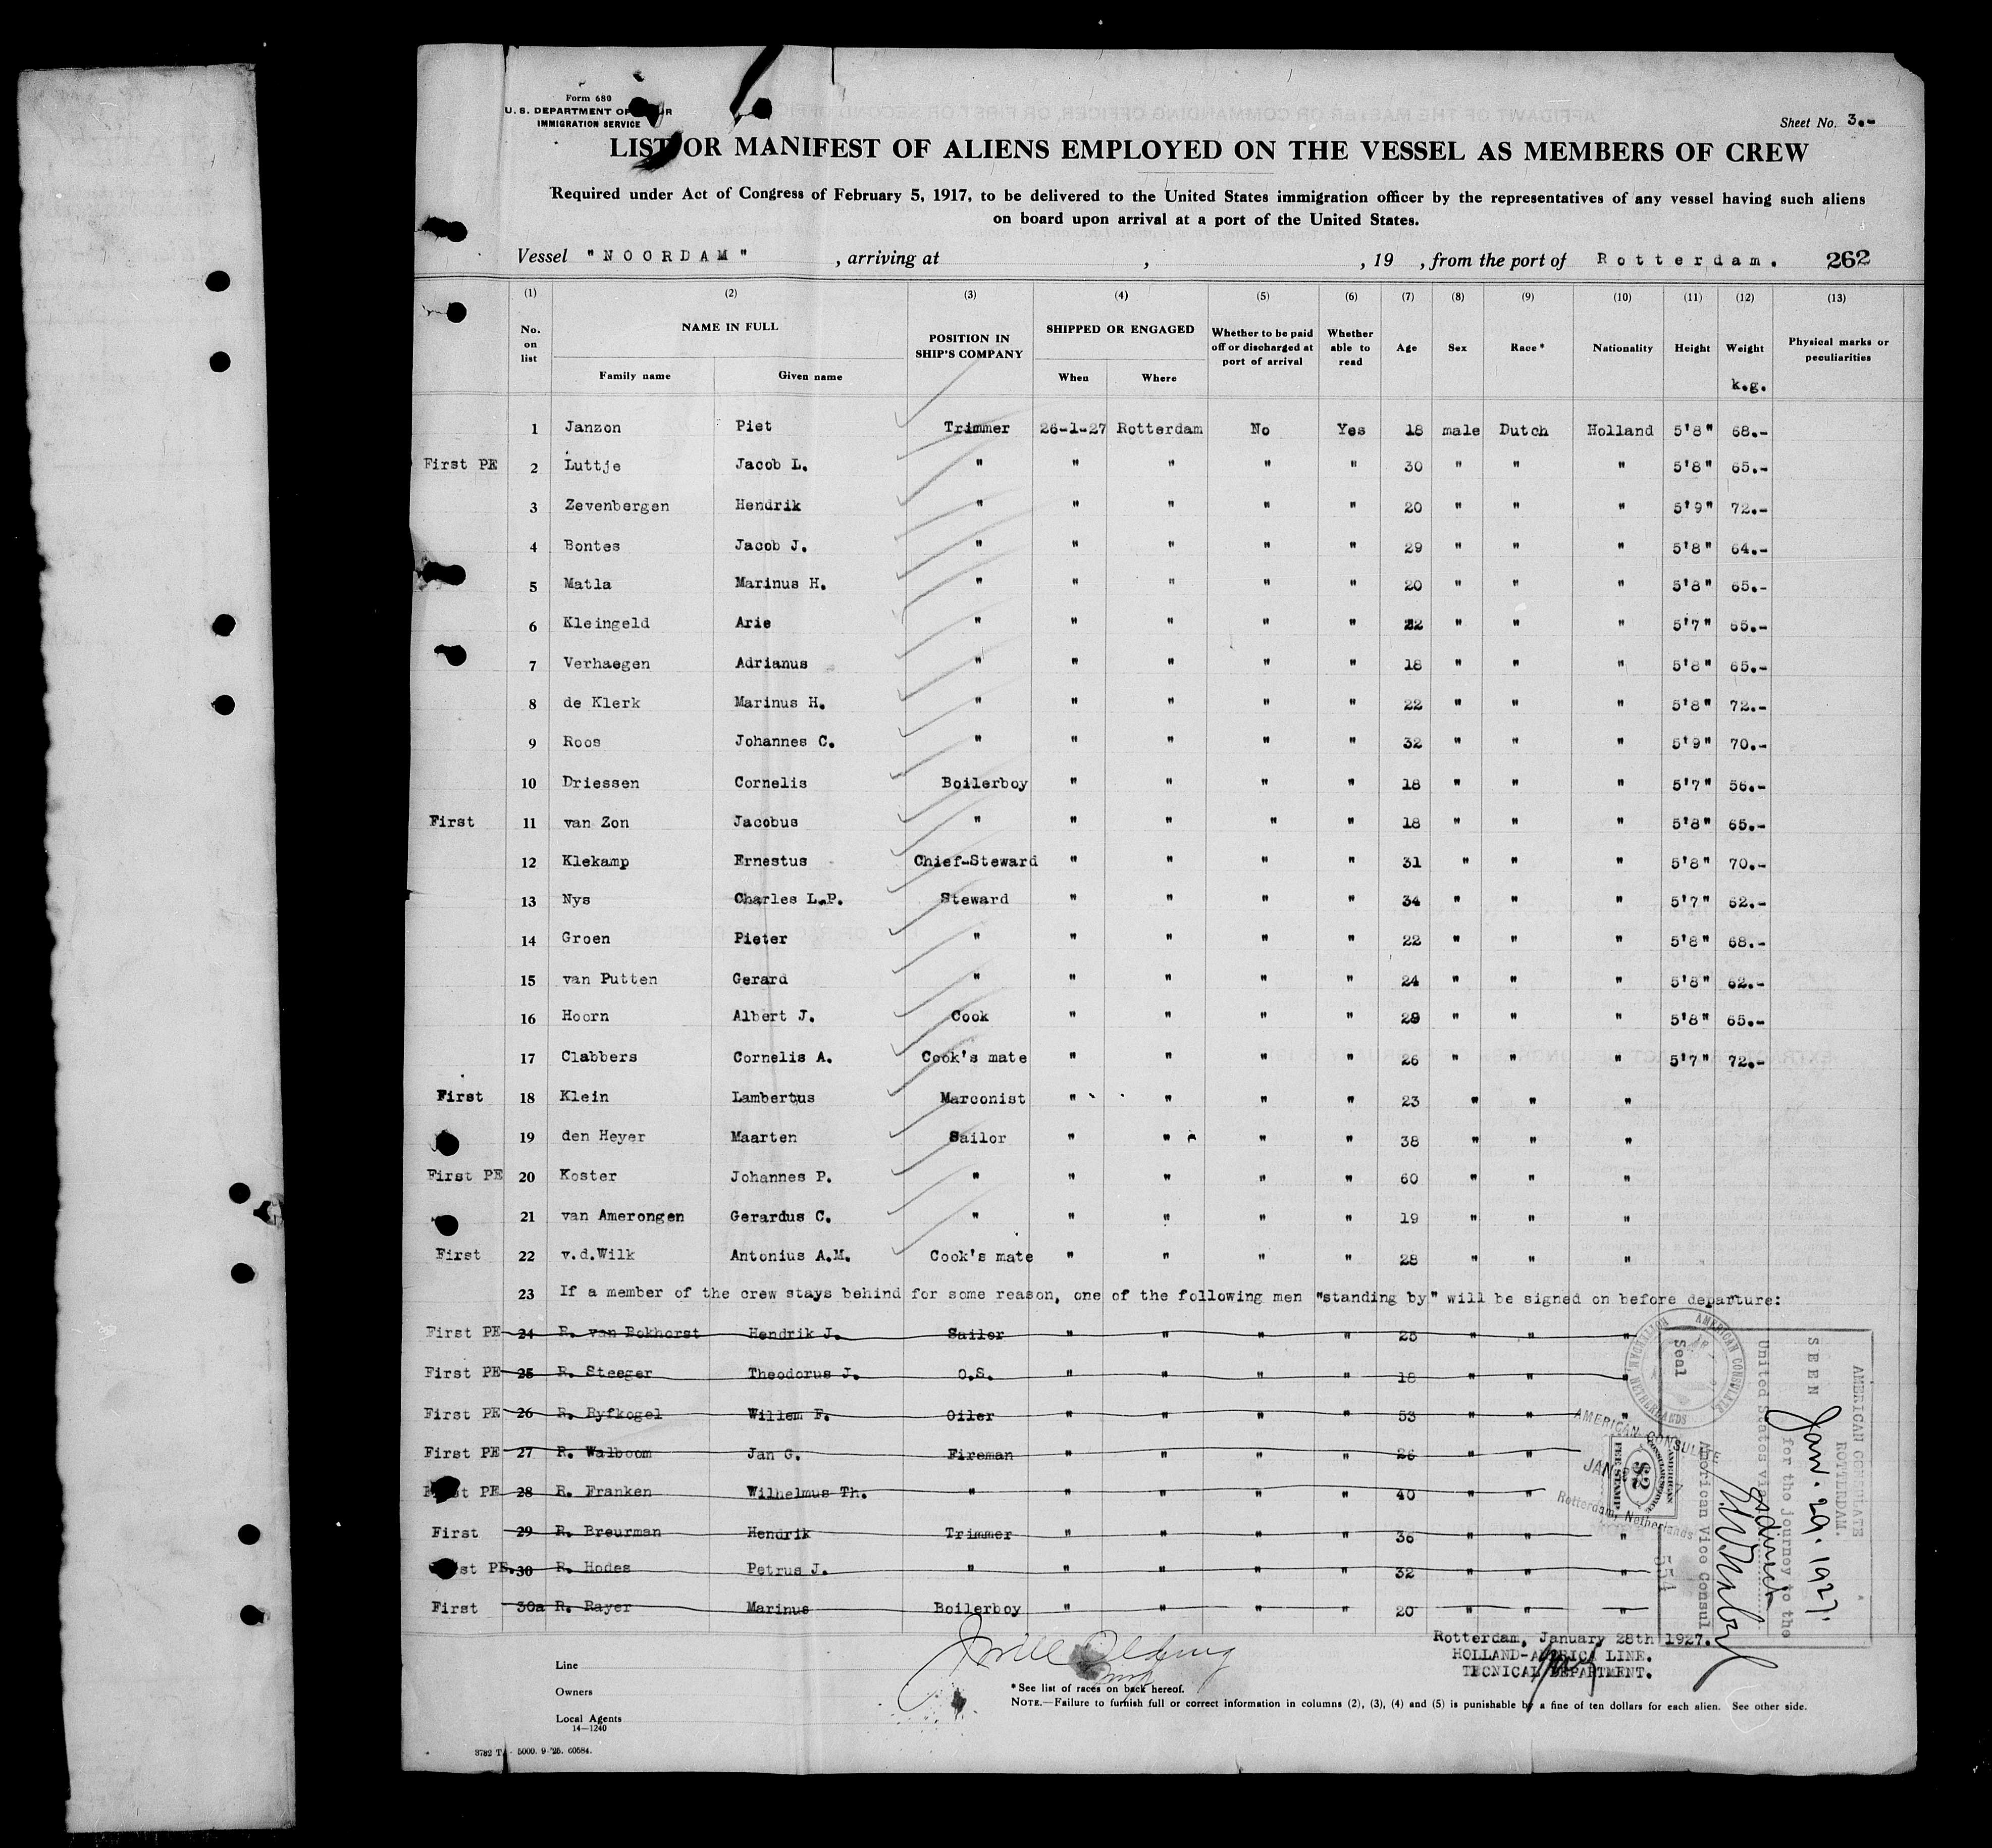 Form 680
U. S. DEPARTMENT OF
IMMIGRATION SERVICE
Sheet No. 3.-
LIST OR MANIFEST OF ALIENS EMPLOYED ON THE VESSEL AS MEMBERS OF CREW
Required under Act of Congress of February 5, 1917, to be delivered to the United States immigration officer by the representatives of any vessel having such aliens
on board upon arrival at a port of the United States.
Vessel "NOORDAM" , arriving at , , 19 , from the port of Rotterdam. 262
(1) (2) (3) (4) (5) (6) (7) (8) (9) (10) (11) (12) (13)
No. on list NAME IN FULL Family name Given name POSITION IN SHIP'S COMPANY SHIPPED OR ENGAGED When Where Whether to be paid off or discharged at port of arrival Whether able to read Age Sex Race* Nationality Height Weight k.g. Physical marks or peculiarities
1 Janzon Piet Trimmer 26-1-27 Rotterdam No Yes 18 male Dutch Holland 5'8" 68.-
First PE 2 Luttje Jacob L. " " " " " 30 " " " 5'8" 65.-
3 Zevenbergen Hendrik " " " " " 20 " " " 5'9" 72.-
4 Bontes Jacob J. " " " " " 29 " " " 5'8" 64.-
5 Matla Marinus H. " " " " " 20 " " " 5'8" 65.-
6 Kleingeld Arie " " " " " 22 " " " 5'7" 65.-
7 Verhaegen Adrianus " " " " " 18 " " " 5'8" 65.-
8 de Klerk Marinus H. " " " " " 22 " " " 5'8" 72.-
9 Roos Johannes C. " " " " " 32 " " " 5'9" 70.-
10 Driessen Cornelis Boilerboy " " " " 18 " " " 5'7" 56.-
First 11 van Zon Jacobus " " " " " 18 " " " 5'8" 65.-
12 Klekamp Ernestus Chief-Steward " " " " 31 " " " 5'8" 70.-
13 Nys Charles L.P. Steward " " " " 34 " " " 5'7" 62.-
14 Groen Pieter " " " " " 22 " " " 5'8" 68.-
15 van Putten Gerard " " " " " 24 " " " 5'8" 62.-
16 Hoorn Albert J. Cook " " " " 29 " " " 5'8" 65.-
17 Clabbers Cornelis A. Cook's mate " " " " 26 " " " 5'7" 72.-
First 18 Klein Lambertus Marconist " " " " 23 " " "
19 den Heyer Maarten Sailor " " " " 38 " " "
First PE 20 Koster Johannes P. " " " " " 60 " " "
21 van Amerongen Gerardus C. " " " " " 19 " " "
First 22 v.d.Wilk Antonius A.M. Cook's mate " " " " 28 " " "
23 If a member of the crew stays behind for some reason, one of the following men "standing by" will be signed on before departure:
First PE 24 R. van Bokhorst Hendrik J. Sailor " " " " 25 " " "
First PE 25 R. Steeger Theodorus J. O.S. " " " " 18 " " "
First PE 26 R. Ryfkogel Willem F. Oiler " " " " 53 " " "
First PE 27 R. Walboom Jan G. Fireman " " " " 26 " "
PE 28 R. Franken Wilhelmus Th. " " " " " 40 " "
First 29 R. Breurman Hendrik Trimmer " " " " 36 " " "
PE. 30 R. Hodes Petrus J. " " " " " 32 " " "
First 30a R. Rayer Marinus Boilerboy " " " " 20 " " "
AMERICAN CONSULATE
ROTTERDAM.
SEEN Jan. 29. 1927.
for the journey to the
United States via direct
Seal American Vice Consul
554
AMERICAN CONSULATE
ROTTERDAM, NETHERLANDS
AMERICAN CONSULATE
JAN
Rotterdam, Netherlands
AMERICAN
$2
FEE STAMP
Rotterdam, January 28th 1927.
HOLLAND-AMERICA LINE.
TECNICAL DEPARTMENT.
Line
Owners
Local Agents
14—1240
*See list of races on back hereof.
NOTE.—Failure to furnish full or correct information in columns (2), (3), (4) and (5) is punishable by a fine of ten dollars for each alien. See other side.
3782 T. - 5000. 9-'25. 60584.